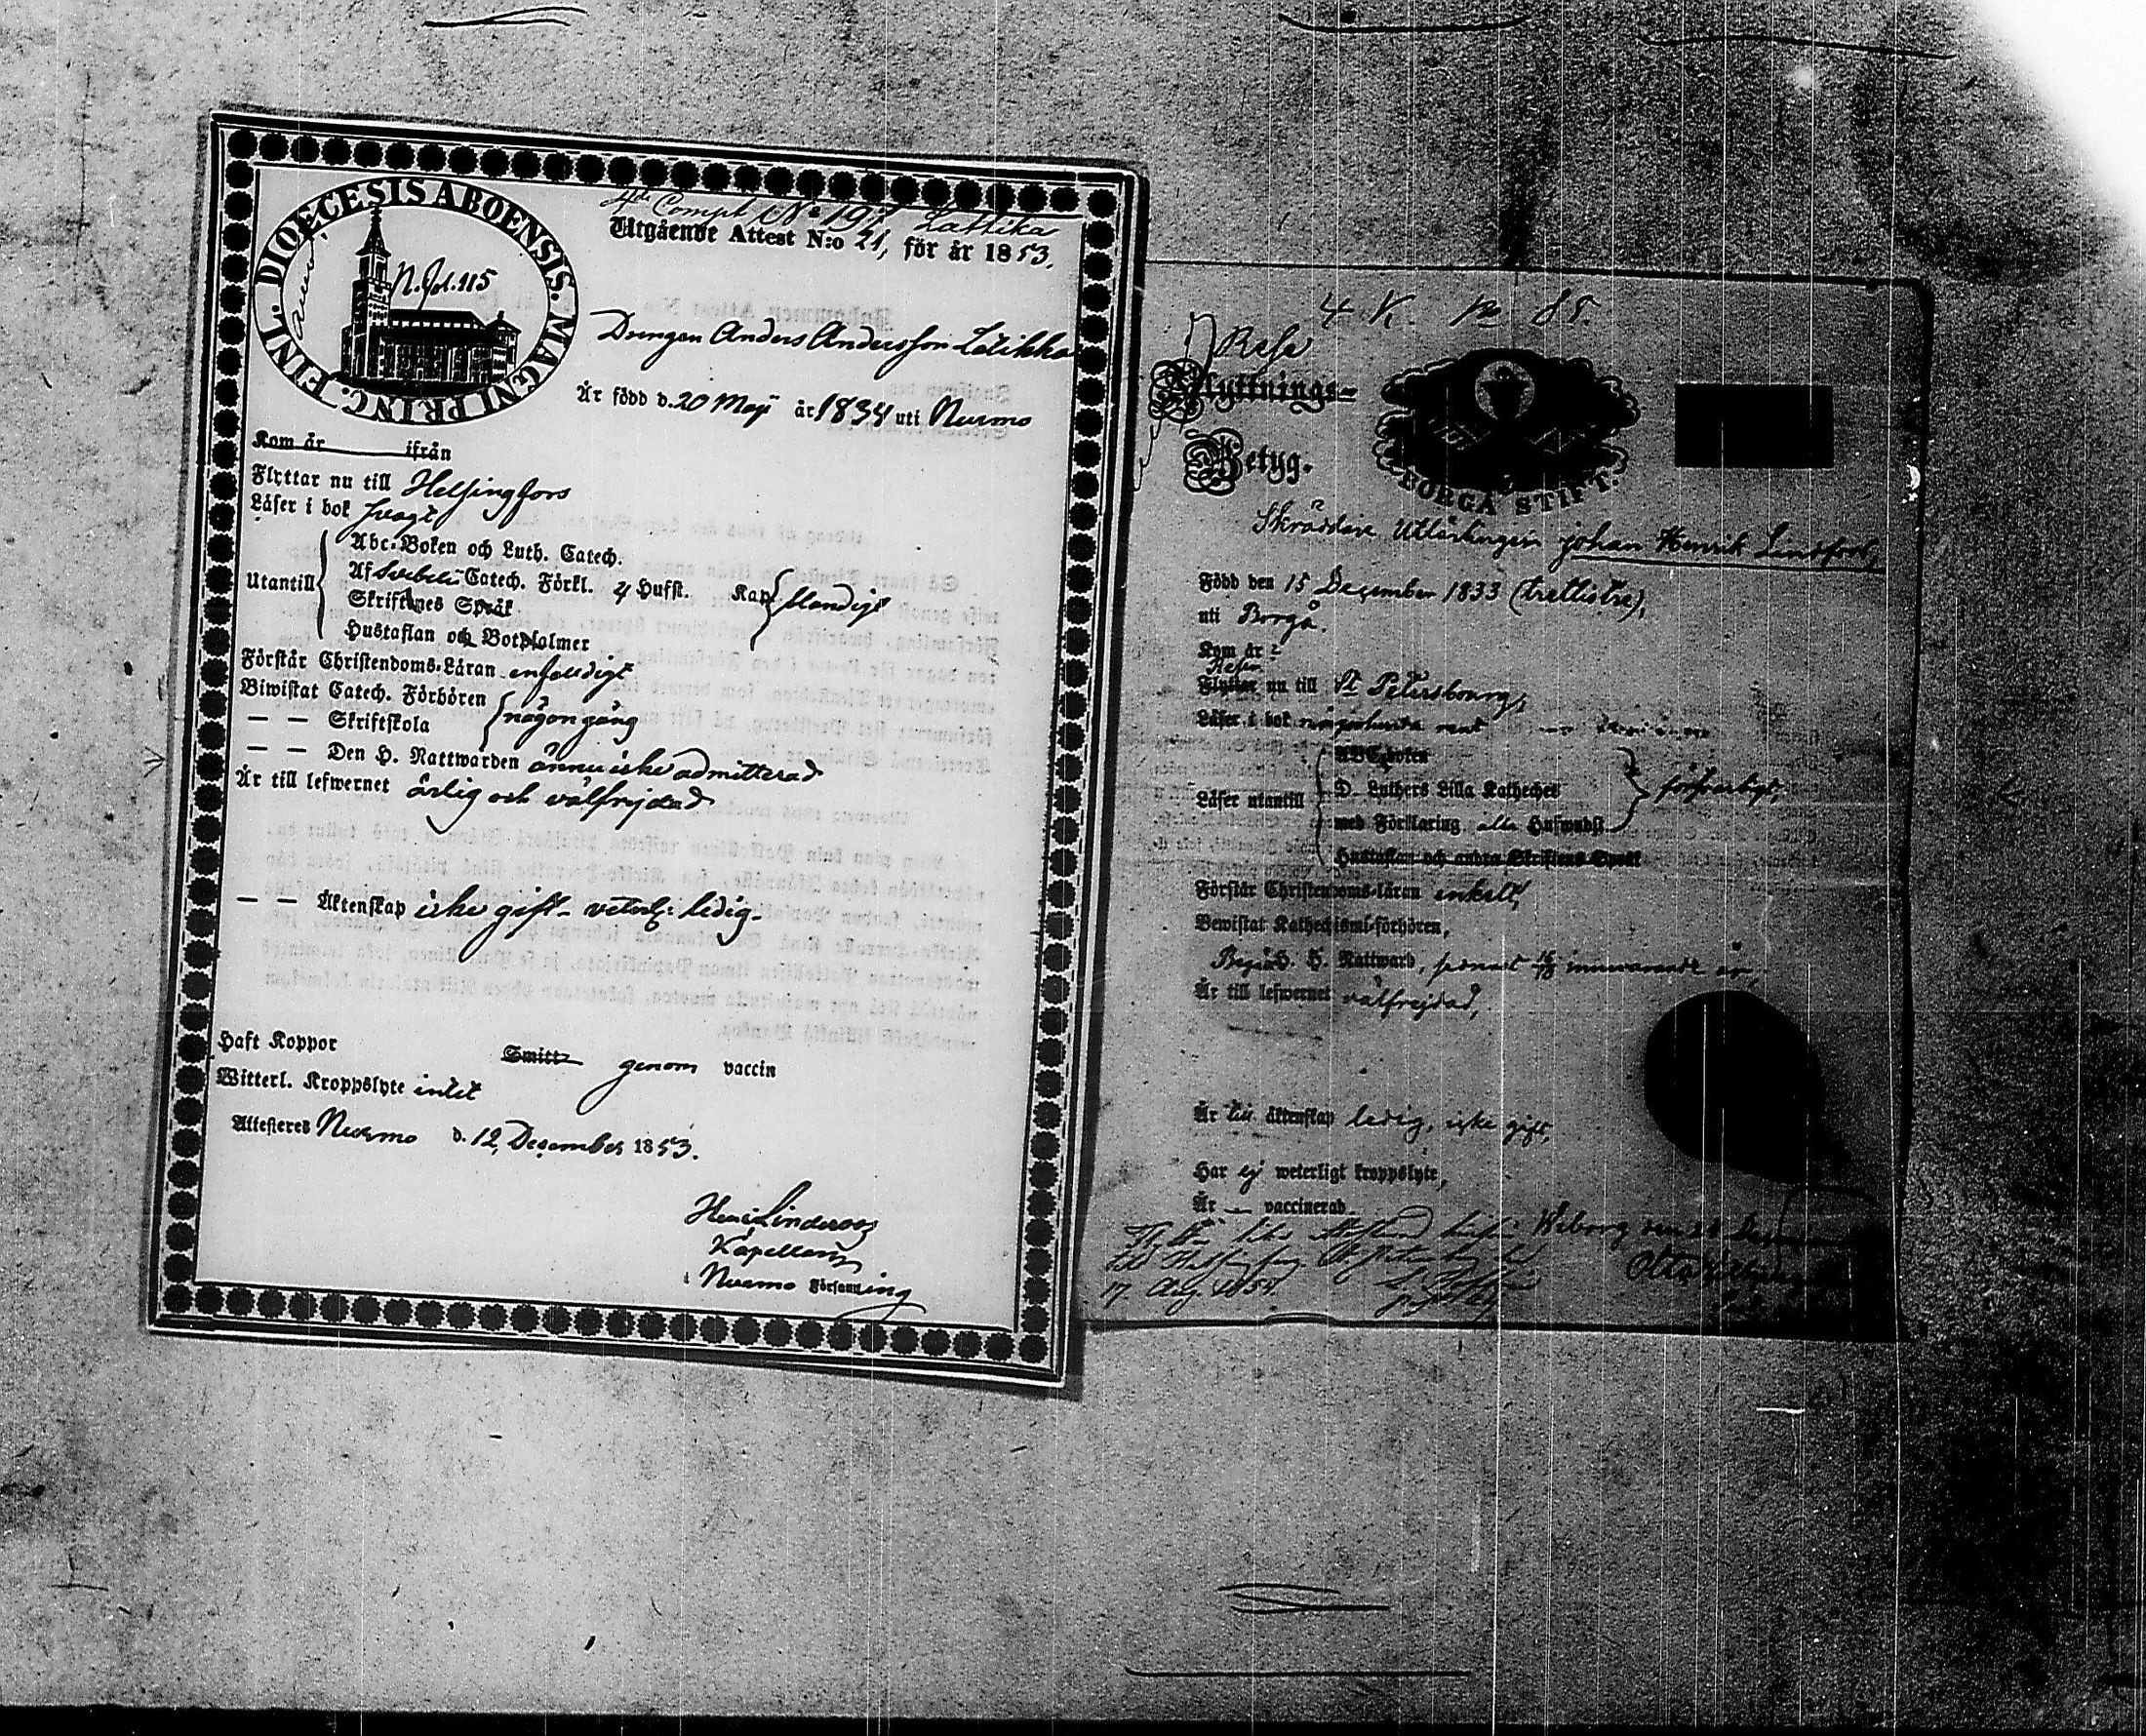 4de Comp. No 197 Lattika
Utgående Attest N:o 21, för år 1853.
FINL. DIOECESIS ABOENSIS. MAGNI PRINC.
N. fol. 115
Drengen Anders Andersson Latikka
Är född d. 20 Maji år 1834 uti Nurmo
Kom år ifrån
Flyttar nu till Helsingfors
Läser i bok svagt
Utantill
Abc-Boken och Luth. Catech.
Af Svebelii Catech. Förkl. 4 Hufst. Kap. blandigt
Skriftenes Språk
Hustaflan och Botpsalmer
Förstår Christendoms-Läran enfaldigt
Biwistat Catech. Förhören
— — Skriftskola någon gång
— — Den H. Nattwarden ännu icke admitterad
Är till lefwernet ärlig och välfrejdad
— — Äktenskap icke gift - veterl: ledig.
Haft Koppor Smitt genom vaccin
Witterl. Kroppslyte intet
Attesteras Nurmo d. 12 December 1853.
Henr Linderoos
Kapellan
i Nurmo Församling
4 K. No 85.
Rese
Flyttnings-
Betyg.
BORGÅ STIFT.
Skräddare Utlärlingen Johan Henrik Lindfors,
Född den 15 December 1833 (trettiotre),
uti Borgå.
Kom år
Reser
Flyttar nu till St Petersbourg,
Läser i bok någorlunda rent
Läser utantill
ABC-boken
D. Luthers Lilla Katheches
med Förklaring alla Hufwudst. försvarligt,
Hustaflan och andra Skriftens Språk
Förstår Christendoms-läran enkelt,
Bewistat Kathechismi-förhören,
Begått H. H. Nattward, sednast innevarande år,
Är till lefwernet välfrejdad,
Är till äktenskap ledig, icke gift,
Har ej weterligt kroppslyte,
Är — vaccinerad
Wiborg den
17 Aug. 1854.